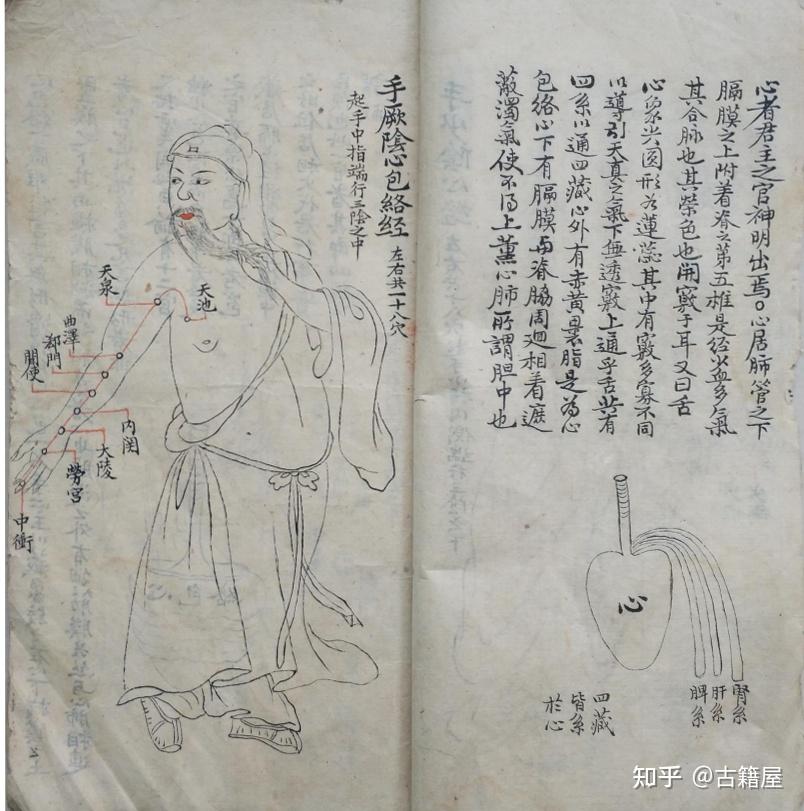 心者君主之官神明出焉。心居肺管之下
膈膜之上附着脊之第五椎是经火血多气
其合脉也其荣色也開竅于耳又曰舌
心象尖圆形如蓮蕊其中有竅多寡不同
以導引天真之氣下無透竅上通乎舌共有
四系以通四藏心外有赤黄裹脂是为心
包絡心下有膈膜与脊脇周廻相着遮
蔽濁氣使不得上薰心肺所謂胆中也
心
腎系
肝系
脾系
四藏
皆系
於心
手厥陰心包絡经
左右共一十八穴
起手中指端行三陰之中
天池
天泉
曲澤
郄門
間使
内関
大陵
勞宫
中衝
知乎 @古籍屋